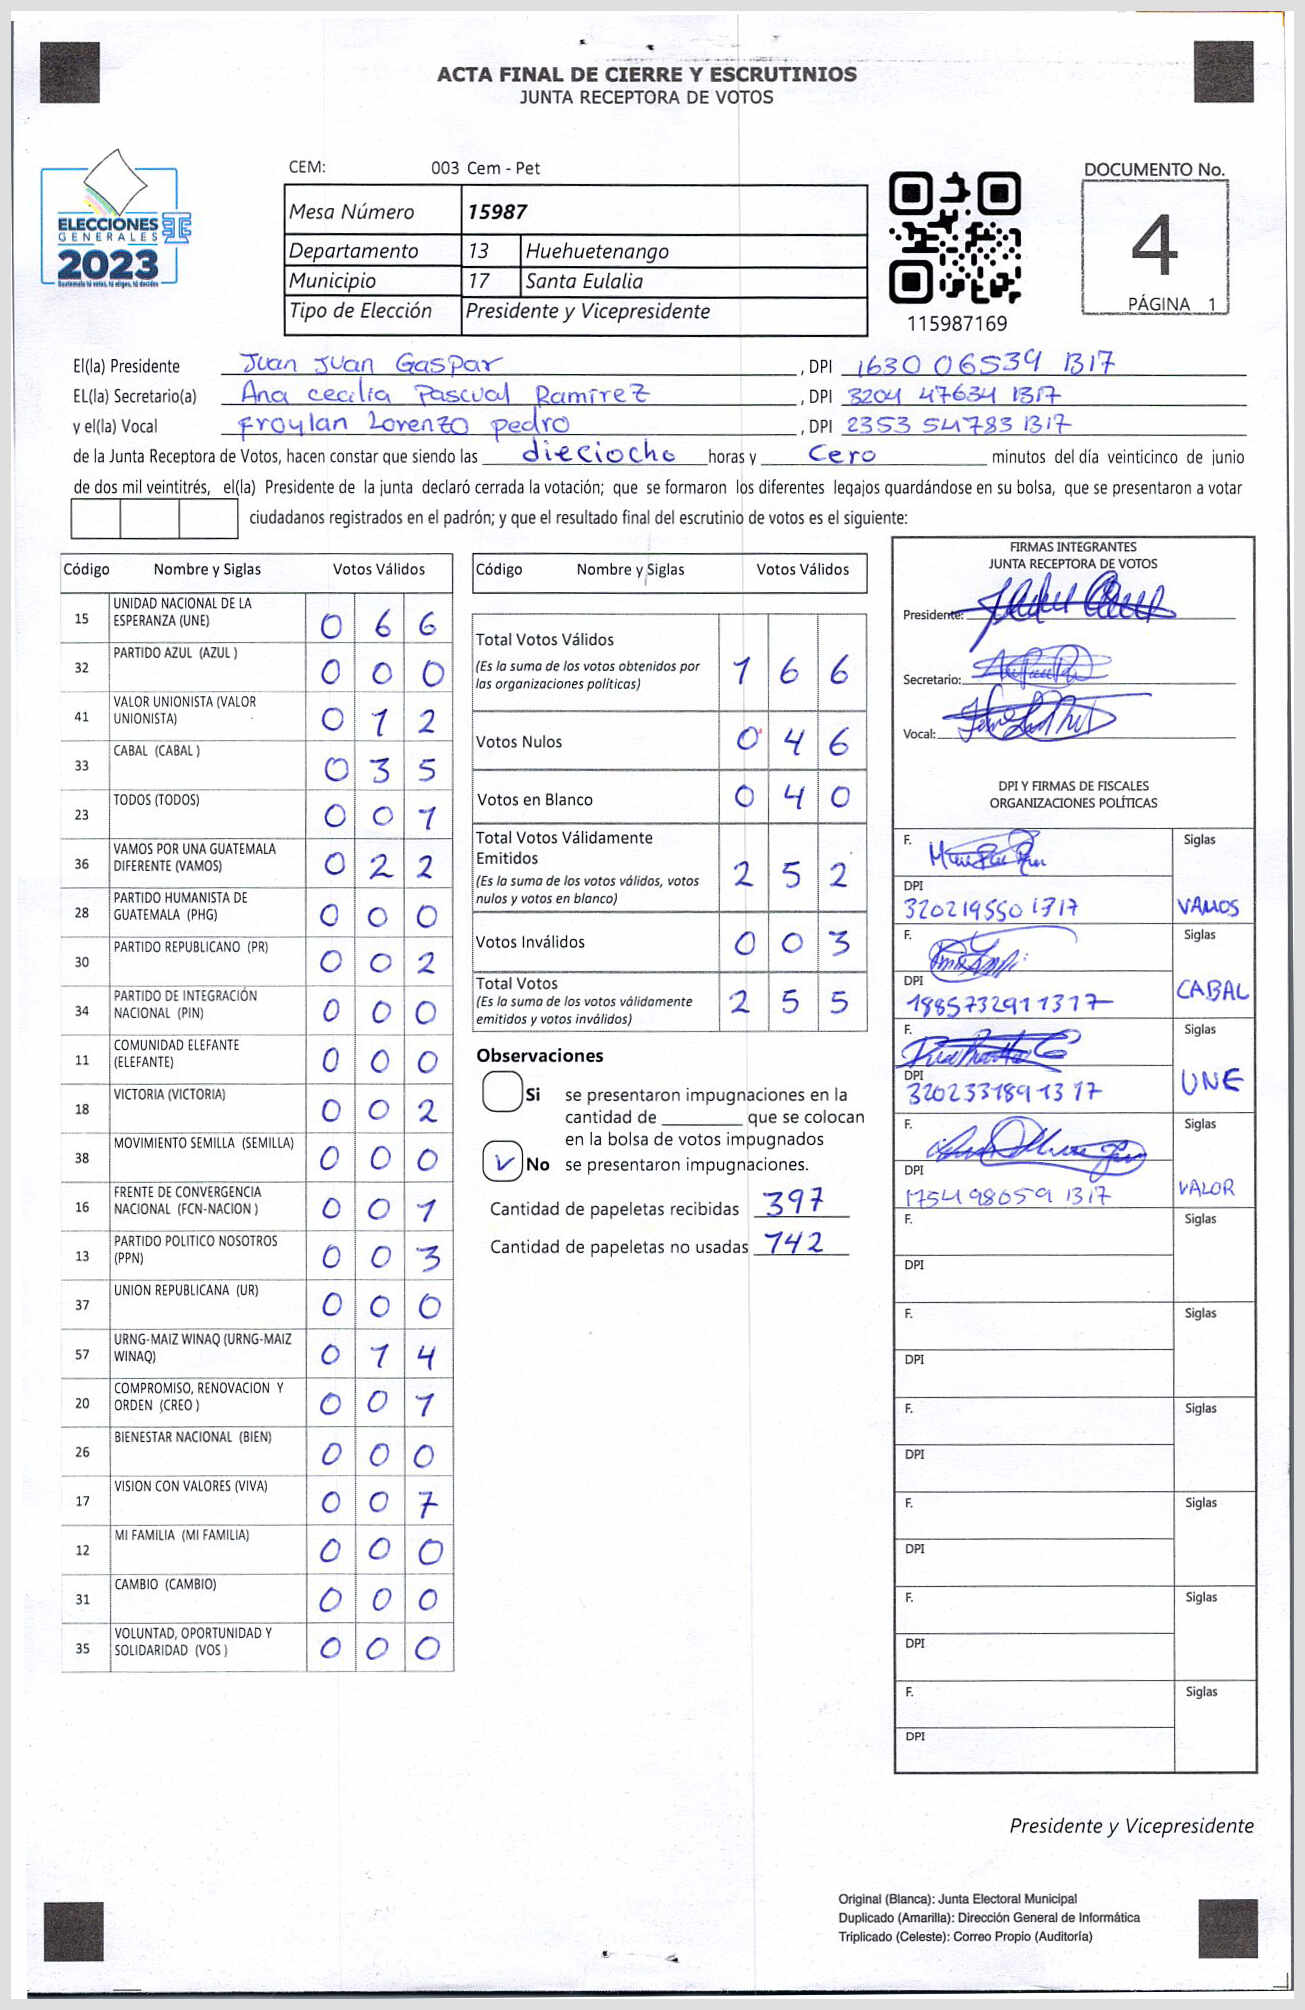 ACTA FINAL DE CIERRE Y ESCRUTINIOS
JUNTA RECEPTORA DE VOTOS
ELECCIONES
GENERALES
2023
Guatemala tú votas, tú eliges, tú decides
CEM: 003 Cem - Pet
Mesa Número 15987
Departamento 13 Huehuetenango
Municipio 17 Santa Eulalia
Tipo de Elección Presidente y Vicepresidente
115987169
DOCUMENTO No.
4
PÁGINA 1
El(la) Presidente Juan Juan Gaspar , DPI 1630 06539 1317
EL(la) Secretario(a) Ana cecilia Pascual Ramírez , DPI 3204 47634 1317
y el(la) Vocal Froylan Lorenzo pedro , DPI 2353 54783 1317
de la Junta Receptora de Votos, hacen constar que siendo las dieciocho horas y Cero minutos del día veinticinco de junio
de dos mil veintitrés, el(la) Presidente de la junta declaró cerrada la votación; que se formaron los diferentes legajos guardándose en su bolsa, que se presentaron a votar
ciudadanos registrados en el padrón; y que el resultado final del escrutinio de votos es el siguiente:
Código Nombre y Siglas Votos Válidos
15 UNIDAD NACIONAL DE LA ESPERANZA (UNE) 0 6 6
32 PARTIDO AZUL (AZUL ) 0 0 0
41 VALOR UNIONISTA (VALOR UNIONISTA) 0 1 2
33 CABAL (CABAL ) 0 3 5
23 TODOS (TODOS) 0 0 1
36 VAMOS POR UNA GUATEMALA DIFERENTE (VAMOS) 0 2 2
28 PARTIDO HUMANISTA DE GUATEMALA (PHG) 0 0 0
30 PARTIDO REPUBLICANO (PR) 0 0 2
34 PARTIDO DE INTEGRACIÓN NACIONAL (PIN) 0 0 0
11 COMUNIDAD ELEFANTE (ELEFANTE) 0 0 0
18 VICTORIA (VICTORIA) 0 0 2
38 MOVIMIENTO SEMILLA (SEMILLA) 0 0 0
16 FRENTE DE CONVERGENCIA NACIONAL (FCN-NACION ) 0 0 1
13 PARTIDO POLITICO NOSOTROS (PPN) 0 0 3
37 UNION REPUBLICANA (UR) 0 0 0
57 URNG-MAIZ WINAQ (URNG-MAIZ WINAQ) 0 1 4
20 COMPROMISO, RENOVACION Y ORDEN (CREO ) 0 0 1
26 BIENESTAR NACIONAL (BIEN) 0 0 0
17 VISION CON VALORES (VIVA) 0 0 7
12 MI FAMILIA (MI FAMILIA) 0 0 0
31 CAMBIO (CAMBIO) 0 0 0
35 VOLUNTAD, OPORTUNIDAD Y SOLIDARIDAD (VOS ) 0 0 0
Código Nombre y Siglas Votos Válidos
Total Votos Válidos 1 6 6
(Es la suma de los votos obtenidos por
las organizaciones políticas)
Votos Nulos 0 4 6
Votos en Blanco 0 4 0
Total Votos Válidamente
Emitidos 2 5 2
(Es la suma de los votos válidos, votos
nulos y votos en blanco)
Votos Inválidos 0 0 3
Total Votos 2 5 5
(Es la suma de los votos válidamente
emitidos y votos inválidos)
Observaciones
Si se presentaron impugnaciones en la
cantidad de ________ que se colocan
en la bolsa de votos impugnados
No se presentaron impugnaciones.
Cantidad de papeletas recibidas 397
Cantidad de papeletas no usadas 142
FIRMAS INTEGRANTES
JUNTA RECEPTORA DE VOTOS
Presidente:
Secretario:
Vocal:
DPI Y FIRMAS DE FISCALES
ORGANIZACIONES POLÍTICAS
F. Siglas
DPI
320219550 1317 VAMOS
F. Siglas
DPI
1885732911317 CABAL
F. Siglas
DPI
3202331891317 UNE
F. Siglas
DPI
1754 98059 1317 VALOR
F. Siglas
DPI
F. Siglas
DPI
F. Siglas
DPI
F. Siglas
DPI
F. Siglas
DPI
F. Siglas
DPI
Presidente y Vicepresidente
Original (Blanca): Junta Electoral Municipal
Duplicado (Amarilla): Dirección General de Informática
Triplicado (Celeste): Correo Propio (Auditoría)